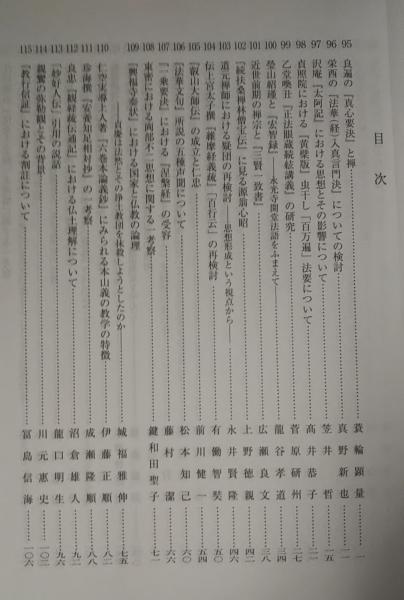 目次
95 良遍の『真心要決』と禅 蓑輪顕量 一
96 栄西の『法華経入真言門決』についての検討 真野新也 八
97 沢庵『太阿記』における思想とその影響について 笠井哲 一五
98 貞照院における「黄檗版」虫干し「百万遍」法要について 髙井恭子 二一
99 乙堂喚丑『正法眼蔵続絃講義』の研究 菅原研州 二七
100 瑩山紹瑾と『宏智録』――永光寺開堂法語をふまえて―― 龍谷孝道 三四
101 近世前期の禅宗と『三賢一致書』 広瀬良文 三八
102 『続扶桑禅林僧宝伝』に見る源翁心昭 上野徳親 四二
103 道元禅師における疑団の再検討――思想形成という視点から―― 永井賢隆 四六
104 伝上宮太子撰『維摩経義疏』「百行云」の再検討 有働智奘
105 『叡山大師伝』の成立と仁忠 前川健一 五四
106 『法華文句』所説の五種声聞について 松本知己 六〇
107 『一乗要決』における『涅槃経』の受容 藤村潔 六六
108 東密における両部不二思想に関する一考察 鍵和田聖子 七一
109 『興福寺奏状』における国家と仏教の論理
――貞慶は法然とその浄土教団を抹殺しようとしたのか―― 城福雅伸 七五
110 仁空実導上人著『六巻本論義鈔』にみられる本山義の教学の特徴 伊藤正順 八二
111 珍海撰『安養知足相対抄』の一考察 成瀬隆順 八八
112 良忠『観経疏伝通記』における仏土理解について 沼倉雄人 九二
113 『妙好人伝』引用の説話 龍口明生 九六
114 親鸞の弥勒観とその背景 川元恵史 一〇二
115 『教行信証』における善計について 冨島信海 一〇六